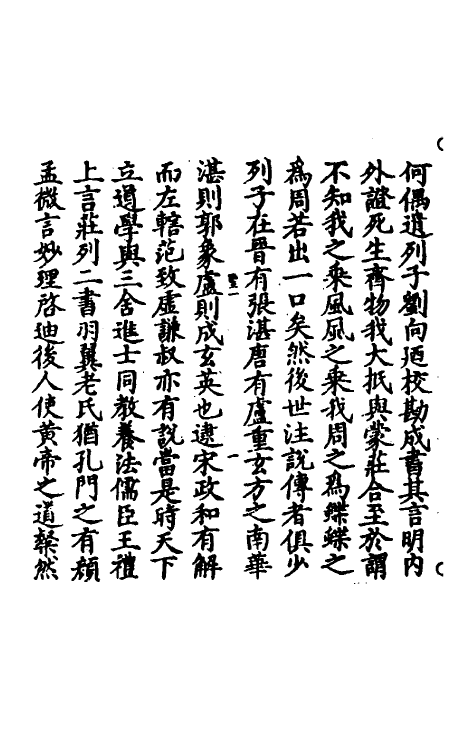 何偶遺列子劉向廼校勘成書其言明內
外證死生齊物我大抵與蒙莊合至於謂
不知我之乘風風之乘我周之爲蝶蝶之
爲周若出一口矣然後世注說傳者俱少
列子在晋有張湛唐有盧重玄方之南華
湛則郭象盧則成玄英也逮宋政和有解
而左轄范致虛謙叔亦有說當是時天下
立道學與三舍進士同教養法儒臣王禮
上言莊列二書羽翼老氏猶孔門之有顏
孟微言妙理啓迪後人使黃帝之道粲然